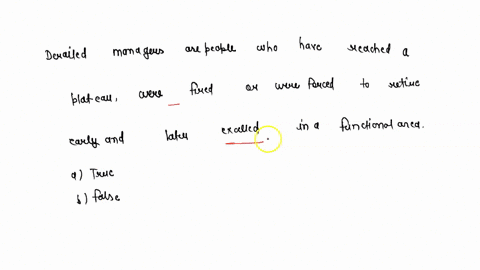 Derailed managers are people who have reached a
plateau, were fired or were forced to retire
early and later excelled in a functional area.
a) True
b) False